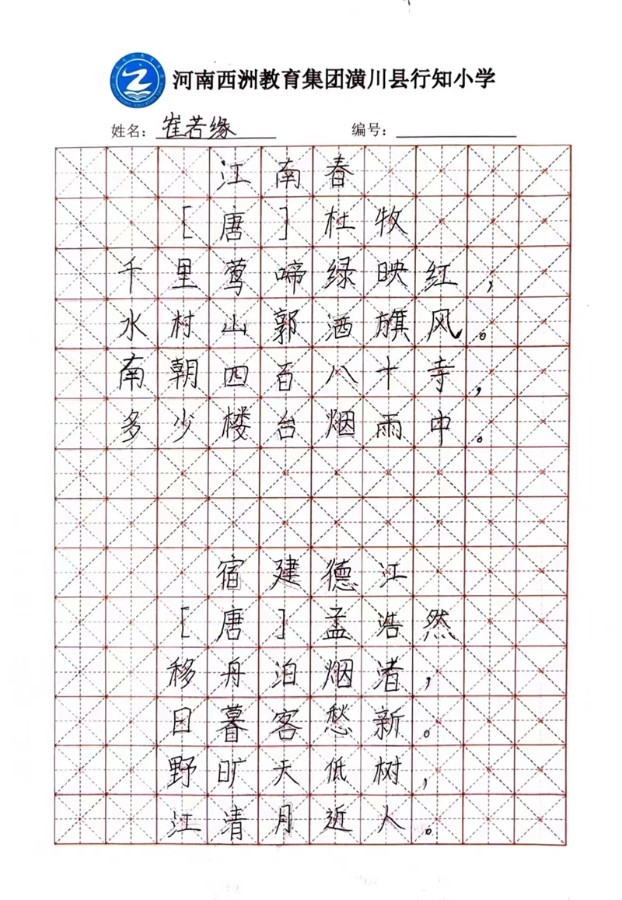 河南西洲教育集团潢川县行知小学
姓名：崔若缘 编号：
江南春
［唐］杜牧
千里莺啼绿映红，
水村山郭酒旗风。
南朝四百八十寺，
多少楼台烟雨中。
宿建德江
［唐］孟浩然
移舟泊烟渚，
日暮客愁新。
野旷天低树，
江清月近人。